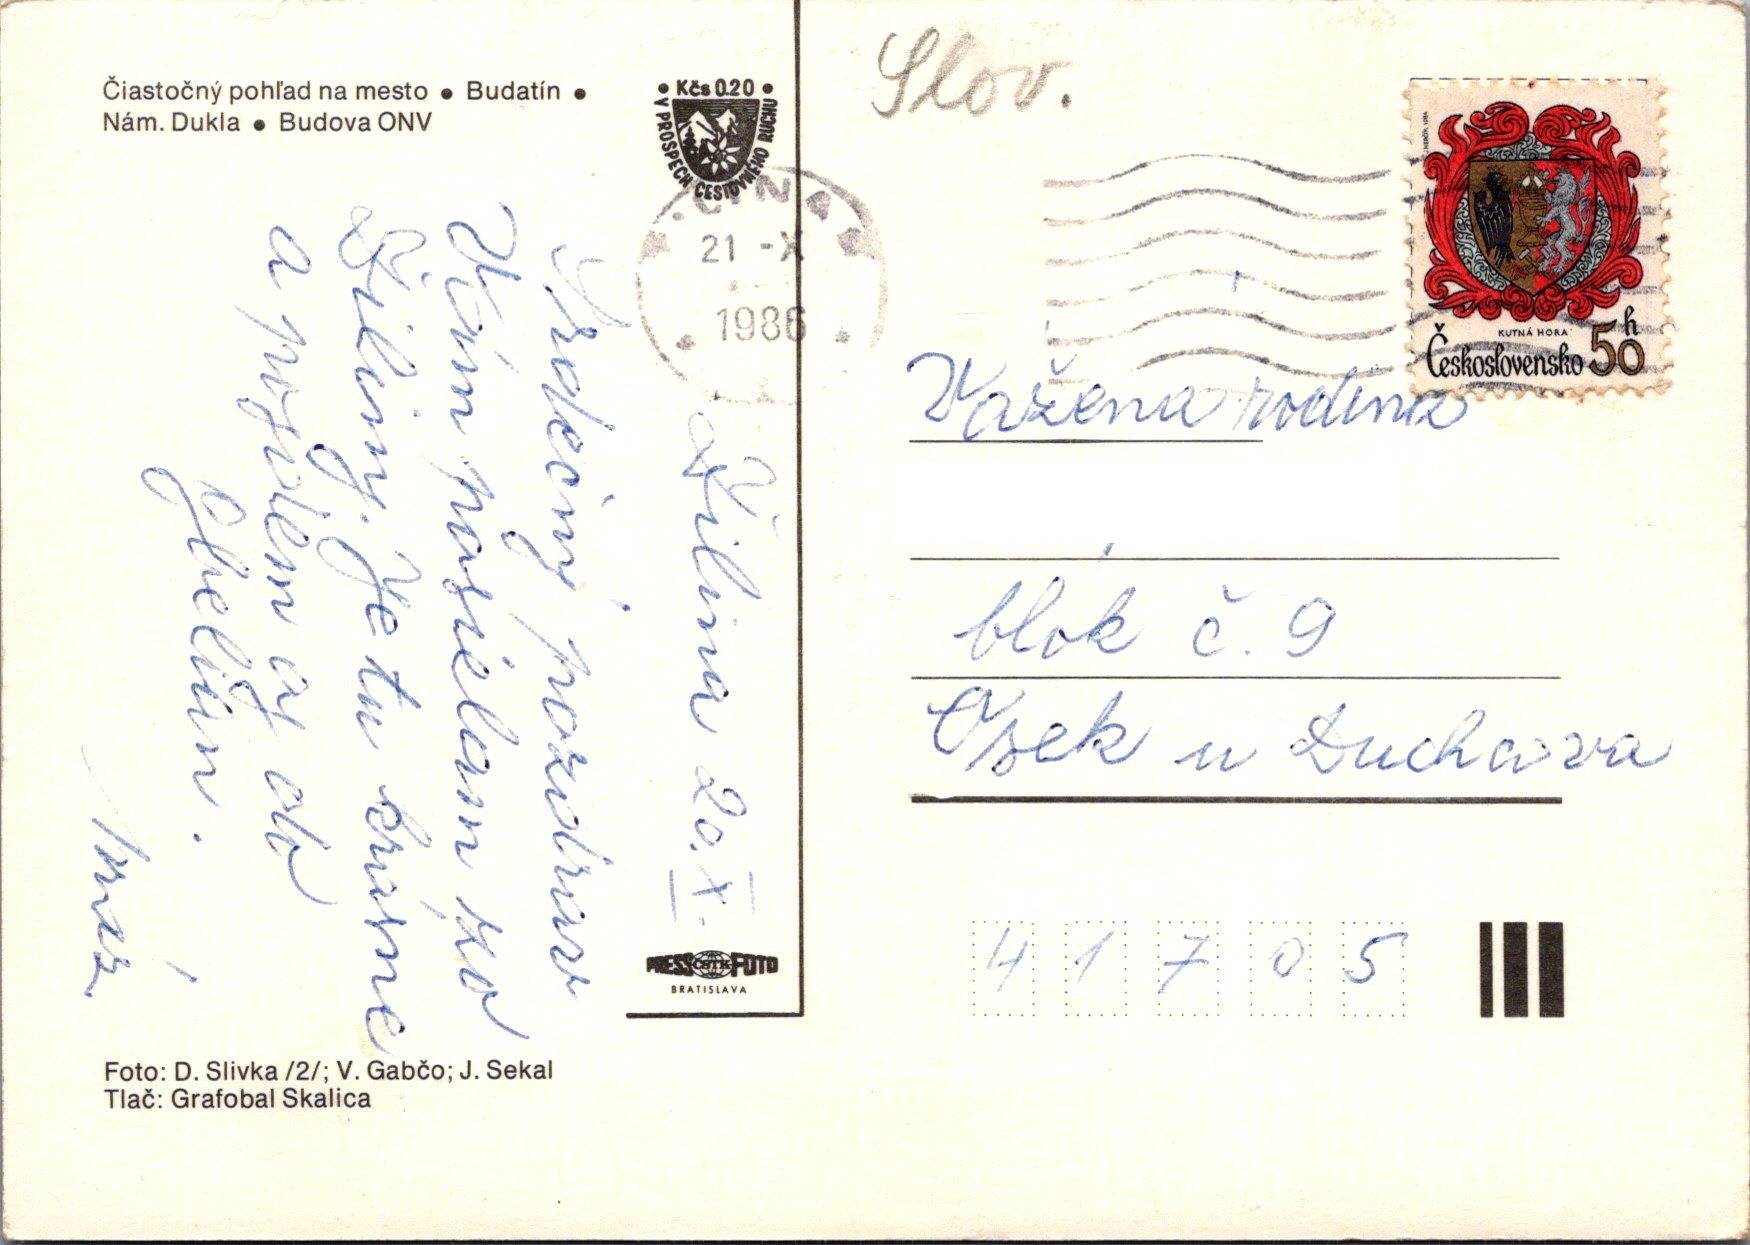 Čiastočný pohľad na mesto • Budatín •
Nám. Dukla • Budova ONV
• Kčs 0.20 •
V PROSPECH CESTOVNÉHO RUCHU
21 -X
1986
Slov.
KUTNÁ HORA
Československo 50 h
Žilina 20. X.
Srdečný pozdrav
Vám posielam zo
Žiliny. Je tu krásne
a pozdem aj do
Gbelian.
Vážená rodina
blok č. 9
Osek u Duchcova
41705
PRESS ČSTK FOTO
BRATISLAVA
Foto: D. Slivka /2/; V. Gabčo; J. Sekal
Tlač: Grafobal Skalica